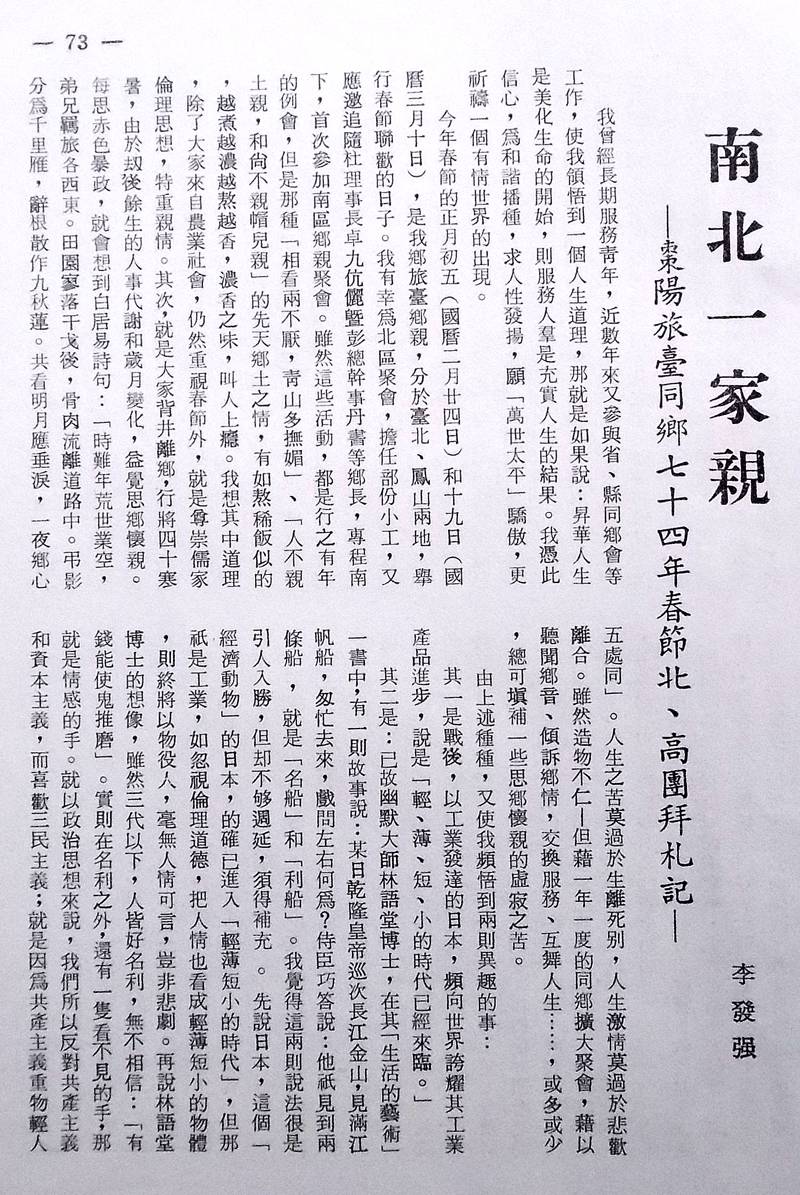 — 73 —
南北一家親
—棗陽旅臺同鄉七十四年春節北、高團拜札記—
李發强
我曾經長期服務靑年，近數年來又參與省、縣同鄉會等
工作，使我領悟到一個人生道理，那就是如果說：昇華人生
是美化生命的開始，則服務人羣是充實人生的結果。我憑此
信心，爲和諧播種，求人性發揚，願「萬世太平」驕傲，更
祈禱一個有情世界的出現。
今年春節的正月初五（國曆二月廿四日）和十九日（國
曆三月十日），是我鄉旅臺鄉親，分於臺北、鳳山兩地，舉
行春節聯歡的日子。我有幸爲北區聚會，擔任部份小工，又
應邀追隨杜理事長卓九伉儷曁彭總幹事丹書等鄉長，專程南
下，首次參加南區鄉親聚會。雖然這些活動，都是行之有年
的例會，但是那種「相看兩不厭，靑山多撫媚」、「人不親
土親，和尙不親帽兒親」的先天鄉土之情，有如熬稀飯似的
，越煮越濃越熬越香，濃香之味，叫人上癮。我想其中道理
，除了大家來自農業社會，仍然重視春節外，就是尊崇儒家
倫理思想，特重親情。其次，就是大家背井離鄉，行將四十寒
暑，由於刼後餘生的人事代謝和歲月變化，益覺思鄉懷親。
每思赤色暴政，就會想到白居易詩句：「時難年荒世業空，
弟兄羈旅各西東。田園寥落干戈後，骨肉流離道路中。弔影
分爲千里雁，辭根散作九秋蓮。共看明月應垂淚，一夜鄉心
五處同」。人生之苦莫過於生離死別，人生激情莫過於悲歡
離合。雖然造物不仁—但藉一年一度的同鄉擴大聚會，藉以
聽聞鄉音、傾訴鄉情，交換服務、互舞人生……，或多或少
，總可塡補一些思鄉懷親的虛寂之苦。
由上述種種，又使我頻悟到兩則異趣的事：
其一是戰後，以工業發達的日本，頻向世界誇耀其工業
產品進步，說是「輕、薄、短、小的時代已經來臨。」
其二是：已故幽默大師林語堂博士，在其「生活的藝術」
一書中，有一則故事說：某日乾隆皇帝巡次長江金山，見滿江
帆船，匆忙去來，戲問左右何爲？侍臣巧答說：他祇見到兩
條船，就是「名船」和「利船」。我覺得這兩則說法很是
引人入勝，但却不够週延，須得補充。先說日本，這個「
經濟動物」的日本，的確已進入「輕薄短小的時代」，但那
祇是工業，如忽視倫理道德，把人情也看成輕薄短小的物體
，則終將以物役人，毫無人情可言，豈非悲劇。再說林語堂
博士的想像，雖然三代以下，人皆好名利，無不相信：「有
錢能使鬼推磨」。實則在名利之外，還有一隻看不見的手，那
就是情感的手。就以政治思想來說，我們所以反對共產主義
和資本主義，而喜歡三民主義；就是因爲共產主義重物輕人